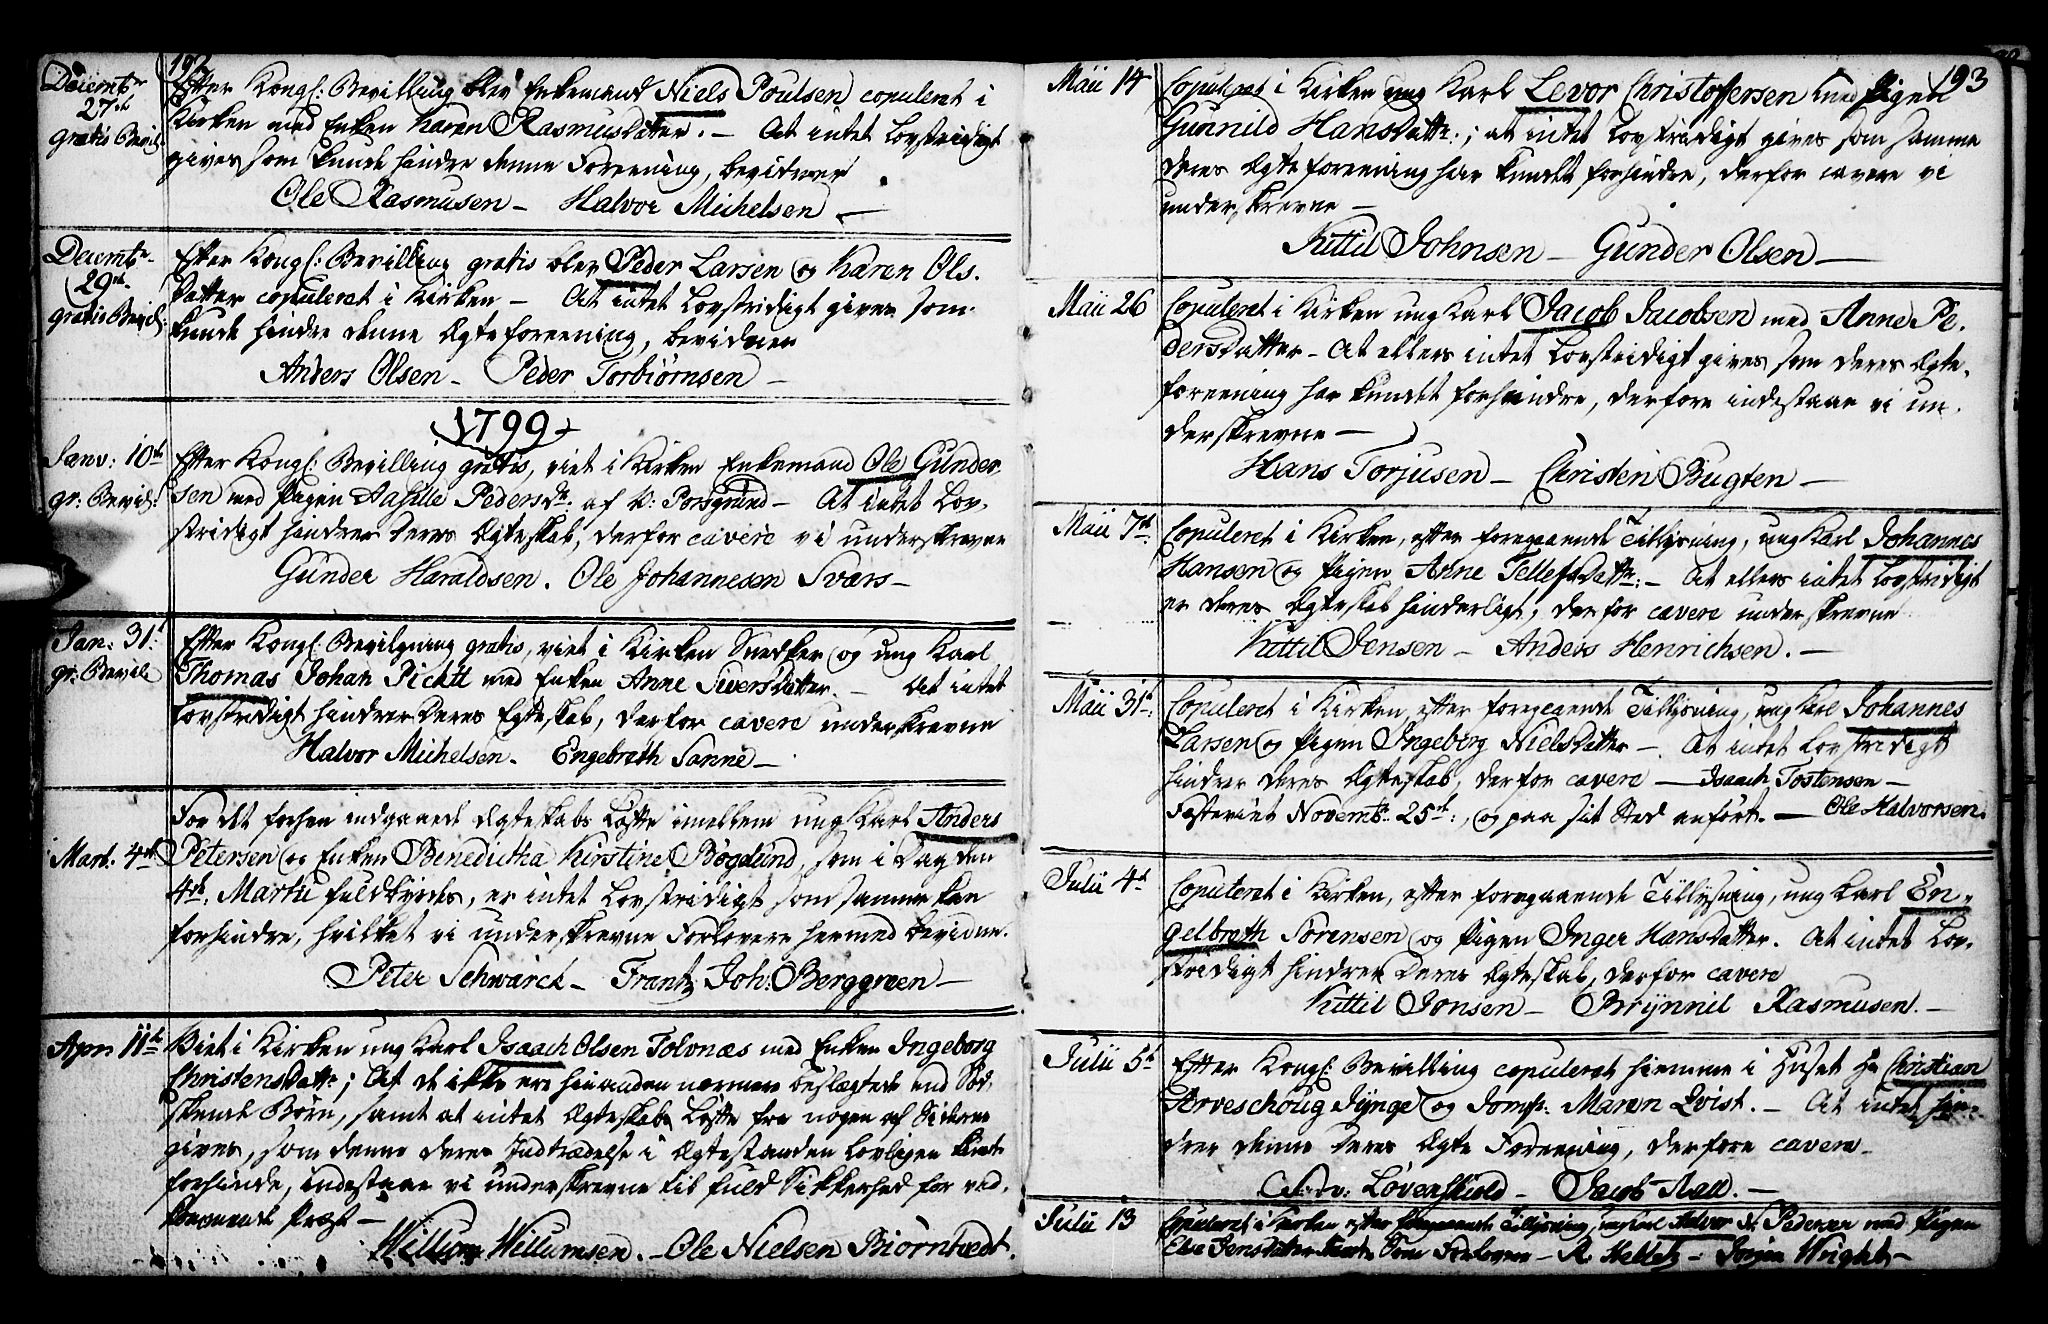 192
Decembr 27de gratis Bevil:
Efter Kongl: Bevilling blev Enkemand Niels Poulsen copuleret i
Kirken med Enken Karen Rasmusdatter. – At intet Lovstridigt
gives som kunde hindre denne Foreening, bevidner
Ole Rasmusen – Halvor Michelsen –
Decembr 29de gratis Bevil:
Efter Kongl: Bevilling gratis blev Peder Larsen og Karen Ols-
datter copuleret i Kirken – At intet Lovstridigt gives som
kunde hindre denne Ægteforeening, bevidner
Anders Olsen – Peder Torbiørnsen –
1799
Janv: 10de gr: Bevil:
Efter Kongl: Bevilling gratis, viet i Kirken Enkemand Ole Gunder-
sen med Pigen Aasille Pedersdr: af V: Porsgrund – At intet Lov-
stridigt hindrer deres Ægteskab, derfor cavere vi underskrevne
Gunder Haraldsen. Ole Johannesen Svars –
Jan: 31t gr: Bevil:
Efter Kongl: Bevilgning gratis, viet i Kirken Snedker og ung Karl
Thomas Johan Pichtt med Enken Anne Siversdatter. – At intet
Lovstridigt hindrer Deres Egteskab, derfor cavere underskrevne
Halvor Michelsen. Engebreth Sanne –
For det forhen indgaaede Ægteskabs Løfte imellem ung Karl Anders
Mart: 4de Petersen og Enken Benedictha Kirstine Bøgelund, som i Dag den
4de Martii fuldbyrdes, er intet Lovstridigt som samme kan
forhindre, hvilket vi underskrevne Forlovere hermed bevidne.
Peter Schwarck – Frantz Joh: Berggreen –
Apr: 11te Viet i Kirken ung Karl Isaach Olsen Tolvnæs med Enken Ingeborg
Christensdattr; At de ikke ere hinanden nærmere beslægtede end Sød-
skende Børn, samt at intet Ægteskabs Løfte fra nogen af Siderne
gives, som denne deres Indtrædelse i Ægtestanden lovligen kunde
forhinde, indestaae vi underskrevne til fuld Sikkerhed for ved-
kommende Præst –
Willum Willumsen. – Ole Nielsen Biørntvedt.
193
Maii 14 Copuleret i Kirken ung Karl Levor Christofersen med Pigen
Gunnild Hansdattr:; at intet Lovstridigt gives som samme
deres Ægteforeening har kundet forhindre, derfor cavere vi
underskrevne –
Kittil Johnsen – Gunder Olsen –
Maii 26 Copuleret i Kirken ung Karl Jacob Jacobsen med Anne Pe-
dersdatter – At ellers intet Lovstridigt gives som deres Ægte-
foreening har kundet forhindre, derfore indestaae vi un-
derskrevne –
Hans Torjusen – Christen Bugten –
Maii 7de Copuleret i Kirken, efter foregaaende Tillysning, ung Karl Johannes
Hansen og Pigen Anne Tellefsdattr: – At ellers intet Lovstridigt
er deres Ægteskab hinderligt, derfor cavere underskrevne
Kittil Jensen – Anders Henrichsen. –
Maii 31t: Copuleret i Kirken efter foregaaende Tillysning, ung Karl Johannes
Larsen og Pigen Ingeborg Nielsdatter – At intet Lovstridigt
hindrer deres Ægteskab, derfor cavere – Isaach Tostensen –
Fæsteviet Novembr 25de:, og paa sit Sted anført. – Ole Halvorsen.
Julii 4de Copuleret i Kirken, efter foregaaende Tillysning, ung Karl En-
gelbreth Sørensen og Pigen Inger Hansdatter. At intet Lov-
stridigt hindrer deres Ægteskab, derfor cavere
Kittil Jonsen – Brynnil Rasmusen. –
Julii 5t Efter Kongl: Bevilling copuleret hiemme i Huset Hr Christian
Terveschoug Jynge og Jomf: Maren Qvist. – At intet hin-
drer denne deres Ægte Foreening, derfore cavere
Løvenskiold – Jacob Aall. –
Julii 13 Copuleret i Kirken efter foregaaende Tillysning, ung Karl Halvor N. Pedersen med Pigen
Else Jensdatter Forlovere – R. – Jørgen Wright –